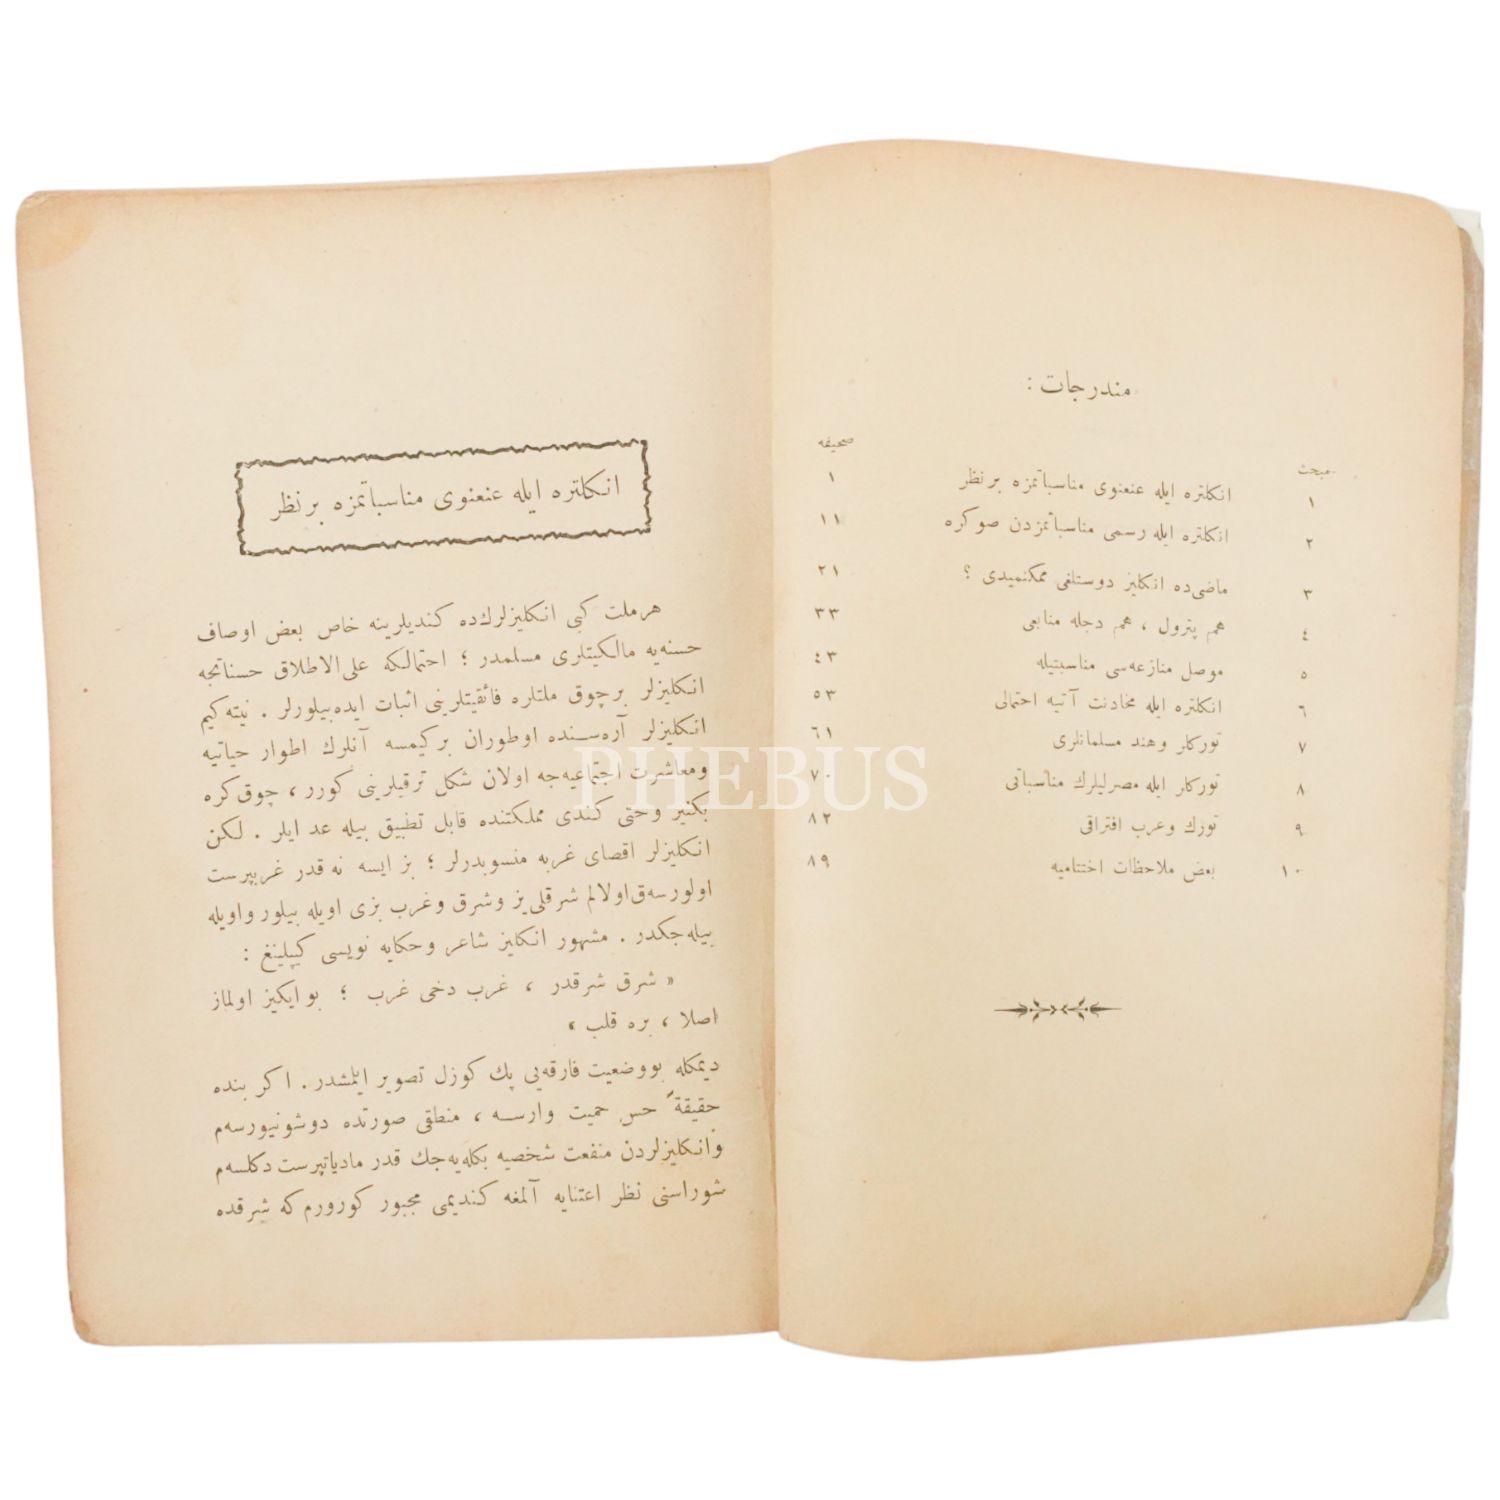 مندرجات :
مبحث صحيفه
١ انكلتره ايله عنعنوى مناسباتمزه بر نظر ١
٢ انكلتره ايله رسمى مناسباتمزدن صوكره ١١
٣ ماضى‌ده انكليز دوستلغى ممكنميدى ؟ ٢١
٤ هم پترول ، هم دجله منابعى ٣٣
٥ موصل منازعه‌سى مناسبتيله ٤٣
٦ انكلتره ايله مخادنت آتيه احتمالى ٥٣
٧ توركلر وهند مسلمانلرى ٦١
٨ توركلر ايله مصرليلرك مناسباتى ٧٠
٩ تورك وعرب افتراقى ٨٢
١٠ بعض ملاحظات اختتاميه ٨٩
انكلتره ايله عنعنوى مناسباتمزه بر نظر
هر ملت كبى انكليزلرك‌ده كنديلرينه خاص بعض اوصاف
حسنه‌يه مالكيتلرى مسلمدر ؛ احتمالكه على‌الاطلاق حسناتجه
انكليزلر بر چوق ملتلره فائقيتلرينى اثبات ايده‌بيلورلر . نيته كيم
انكليزلر آره‌سنده اوطوران بر كيمسه آنلرك اطوار حياتيه
ومعاشرت اجتماعيه‌جه اولان شكل ترقيلرينى كورر ، چوق كره
بكنير وحتى كندى مملكتنده قابل تطبيق بيله عد ايلر . لكن
انكليزلر اقصاى غربه منسوبدرلر ؛ بز ايسه نه قدر غربپرست
اولورسه‌ق اولالم شرقلى‌يز وشرق وغرب بزى اويله بيلور واويله
بيله‌جكدر . مشهور انكليز شاعر وحكايه نويسى كيپلينغ :
« شرق شرقدر ، غرب دخى غرب ؛ بو ايكيز اولماز
اصلا ، بره قلب ،
ديمكله بو وضعيت فارقه‌يى پك كوزل تصوير ايلمشدر . اكر بنده
حقيقةً حس حميت وارسه ، منطقى صورتده دوشونيورسه‌م
وانكليزلردن منفعت شخصيه بكله‌يه‌جك قدر مادياتپرست دكلسه‌م
شوراسنى نظر اعتنايه آلمغه كنديمى مجبور كورورم كه شرقده
PHEBUS